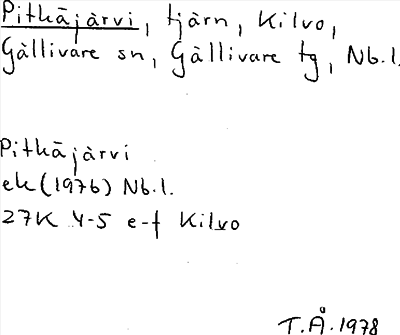 Pitkäjärvi, tjärn, Kilvo,
Gällivare sn, Gällivare tg, Nb.l.
Pitkäjärvi
ek (1976) Nb.l.
27K 4-5 e-f Kilvo
T.Å. 1978